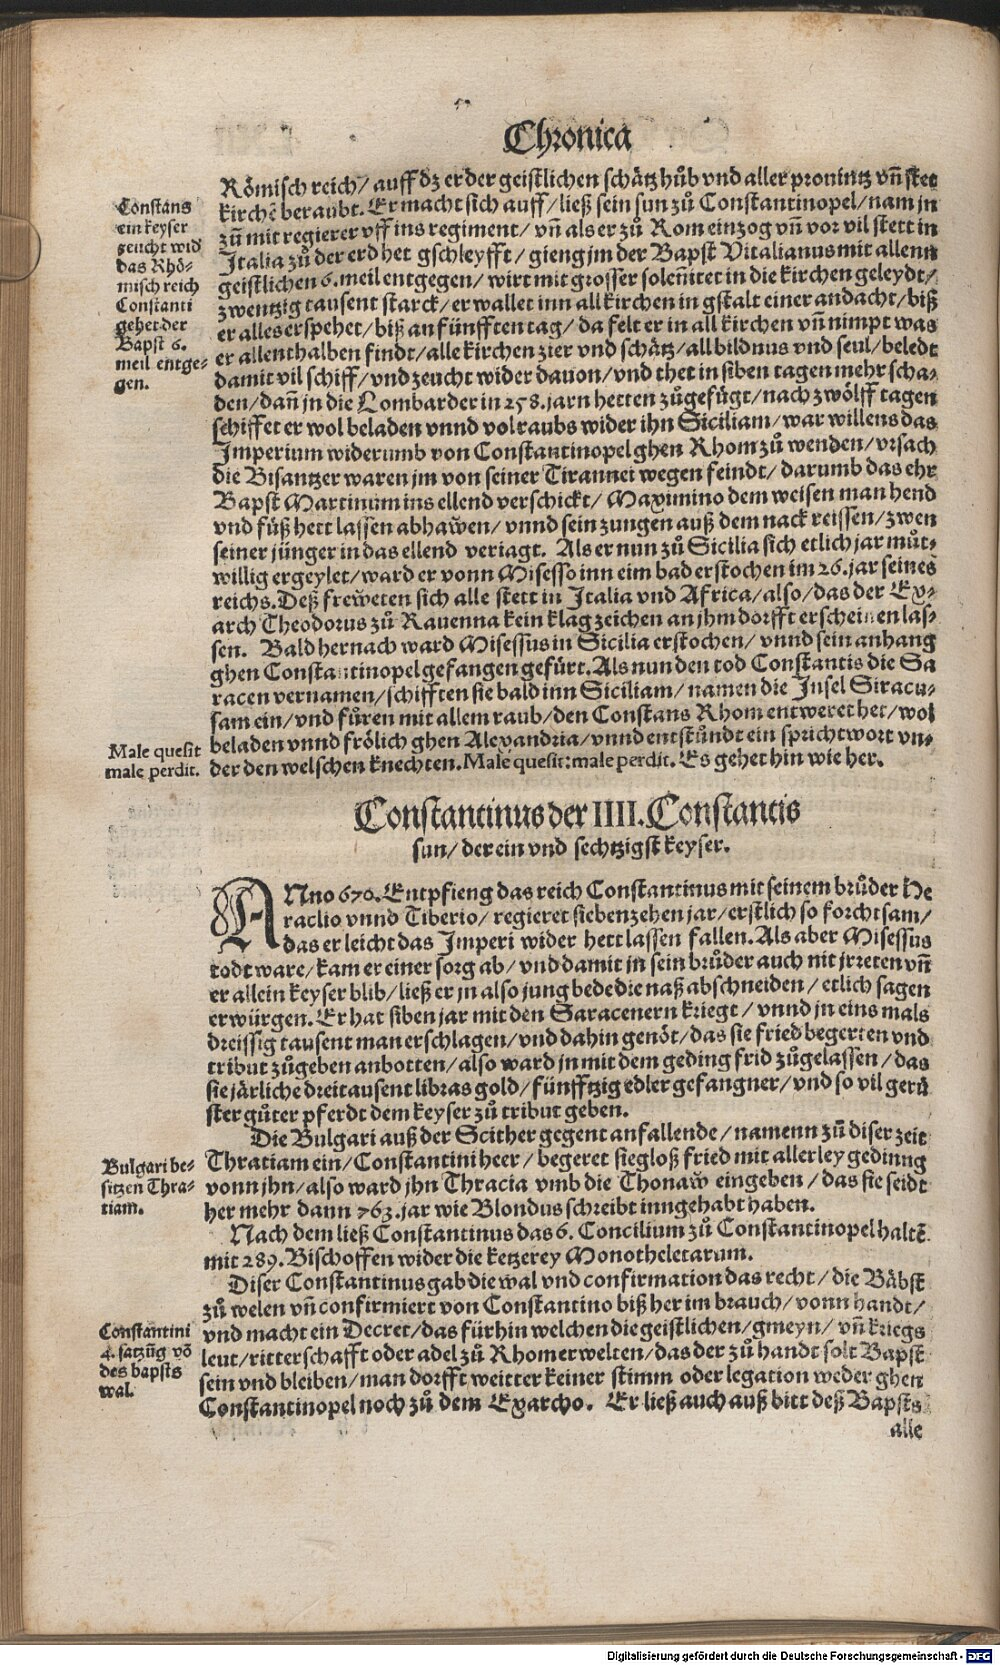 Chronica
Römisch reich/ auff dz er der geistlichen schätz hůb vnd aller prouintz vñ stet
kirchē beraubt. Er macht sich auff/ ließ sein sun zů Constantinopel/ nam jn
zů mit regierer vff ins regiment/ vñ als er zů Rom einzog vñ vor vil stett in
Italia zů der erd het gschleyfft/ gieng jm der Bapst Vitalianus mit allenn
geistlichen 6. meil entgegen/ wirt mit grosser soleñitet in die kirchen geleydt/
zwentzig tausent starck/ er wallet inn all kirchen in gstalt einer andacht/ biß
er alles erspehet/ biß an fünfften tag/ da felt er in all kirchen vñ nimpt was
er allenthalben findt/ alle kirchen zier vnd schätz/ all bildnus vnd seul/ beledt
damit vil schiff/ vnd zeucht wider dauon/ vnd thet in siben tagen mehr scha-
den/ dañ jn die Lombarder in 258. jarn hetten zůgefügt/ nach zwölff tagen
schiffet er wol beladen vnnd vol raubs wider ihn Siciliam/ war willens das
Imperium widerumb von Constantinopel ghen Rhom zů wenden/ vrsach
die Bisantzer waren jm von seiner Tirannei wegen feindt/ darumb das ehr
Bapst Martinum ins ellend verschickt/ Maximino dem weisen man hend
vnd füß hett lassen abhawen/ vnnd sein zungen auß dem nack reissen/ zwen
seiner jünger in das ellend veriagt. Als er nun zů Sicilia sich etlich jar můt-
willig ergeylet/ ward er vonn Misesso inn eim bad erstochen im 26. jar seines
reichs. Deß freweten sich alle stett in Italia vnd Africa/ also/ das der Ex-
arch Theodorus zů Rauenna kein klagzeichen an jhm dorfft erscheinen las-
sen. Bald hernach ward Misessus in Sicilia erstochen/ vnnd sein anhang
ghen Constantinopel gefangen gefürt. Als nun den tod Constantis die Sa
racen vernamen/ schifften sie bald inn Siciliam/ namen die Insel Siracu-
sam ein/ vnd fůren mit allem raub/ den Constans Rhom entweret het/ wol
beladen vnnd frölich ghen Alexandria/ vnnd entstůndt ein sprichtwort vn-
der den welschen knechten. Male quesit: male perdit. Es gehet hin wie her.
Constans
ein keyser
zeucht wid
das Rhö-
misch reich
Constanti
gehet der
Bapst 6.
meil entge-
gen.
Male quesit
male perdit.
Constantinus der IIII. Constantis
sun/ der ein vnd sechtzigst keyser.
ANno 670. Entpfieng das reich Constantinus mit seinem brůder He
raclio vnnd Tiberio/ regieret siebenzehen jar/ erstlich so forchtsam/
das er leicht das Imperi wider hett lassen fallen. Als aber Misessus
todt ware/ kam er einer sorg ab/ vnd damit jn sein brůder auch nit jrreten vñ
er allein keyser blib/ ließ er jn also jung bede die naß abschneiden/ etlich sagen
erwürgen. Er hat siben jar mit den Saracenern kriegt/ vnnd jn eins mals
dreissig tausent man erschlagen/ vnd dahin genöt/ das sie fried begerten vnd
tribut zůgeben anbotten/ also ward jn mit dem geding frid zůgelassen/ das
sie järliche dreitausent libras gold/ fünfftzig edler gefangner/ vnd so vil gerů
ster gůter pferdt dem keyser zů tribut geben.
Die Bulgari auß der Scither gegent anfallende/ namenn zů diser zeit
Thratiam ein/ Constantini heer/ begeret siegloß fried mit allerley gedinng
vonn jhn/ also ward jhn Thracia vmb die Thonaw eingeben/ das sie seidt
her mehr dann 763. jar wie Blondus schreibt inngehabt haben.
Nach dem ließ Constantinus das 6. Concilium zů Constantinopel haltē
mit 289. Bischoffen wider die ketzerey Monotheletarum.
Diser Constantinus gab die wal vnd confirmation das recht/ die Bäbst
zů welen vñ confirmiert von Constantino biß her im brauch/ vonn handt/
vnd macht ein Decret/ das fürhin welchen die geistlichen/ gmeyn/ vñ kriegs
leut/ ritterschafft oder adel zů Rhom erwelten/ das der zů handt solt Bapst
sein vnd bleiben/ man dorfft weitter keiner stimm oder legation weder ghen
Constantinopel noch zů dem Exarcho. Er ließ auch auß bitt deß Bapsts
alle
Bulgari be-
sitzen Thra-
tiam.
Constantini
4. satzüg vō
des bapsts
wal.
Digitalisierung gefördert durch die Deutsche Forschungsgemeinschaft - DFG